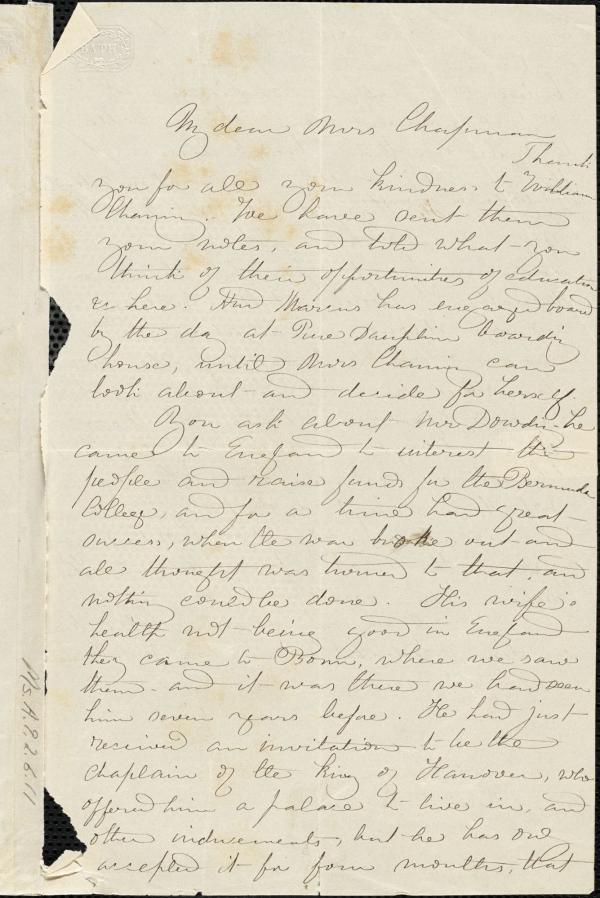 BATH
My dear Mrs Chapman
Thank
you for all your kindness to William
Channing. We have sent them
your notes, and told what you
think of their opportunities of education
&c here. Marcus has engaged board
by the day at Dauphin boarding
house, until Mrs Channing can
look about and decide for herself.
You ask about Mr Dowding - he
came to England to interest the
people and raise funds for the Bermuda
College, and for a time had great
success, when the war broke out and
all thought was turned to that, and
nothing could be done. His wife's
health not being good in England
they came to Bonn, where we saw
them - and it was there we had seen
him seven years before. He had just
received an invitation to be the
chaplain of the king of Hanover, who
offered him a palace to live in, and
other inducements, but he has
accepted it for four months, that
Ms.A.9.2.6.11